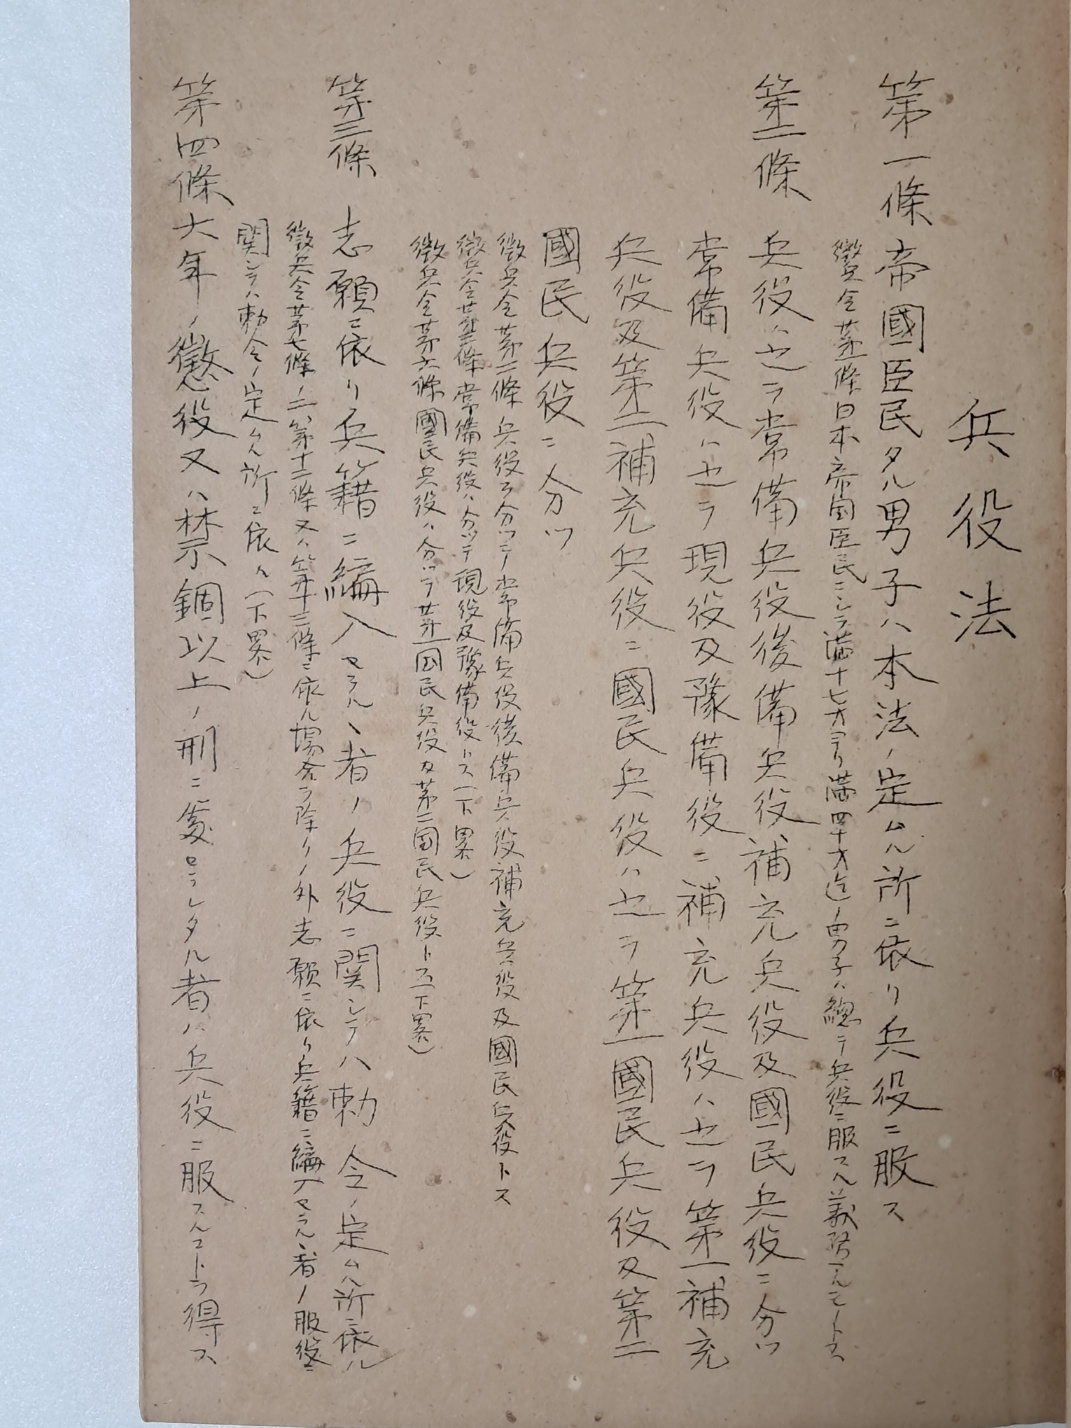 兵役法
第一條 帝國臣民タル男子ハ本法ノ定ムル所ニ依リ兵役ニ服ス
徴兵令第一條日本帝国臣民ニシテ満十七才ヨリ満四十才迄ノ男子ハ總テ兵役ニ服スル義務アルモノトス
第二條 兵役ハ之ヲ常備兵役後備兵役補充兵役及國民兵役ニ分ツ
常備兵役ハ之ヲ現役及豫備役ニ補充兵役ハ之ヲ第一補充
兵役及第二補充兵役ニ國民兵役ハ之ヲ第一國民兵役及第二
國民兵役ニ分ツ
徴兵令第二條 兵役ヲ分ツテ常備兵役後備兵役補充兵役及國民兵役トス
徴兵令第三條 常備兵役ハ分ツテ現役及豫備役トス(下畧)
徴兵令第六條 國民兵役ハ分ツテ第一国民兵役及第二国民兵役トス(下畧)
第三條 志願ニ依リ兵籍ニ編入セラルヽ者ノ兵役ニ関シテハ勅令ノ定ムル所ニ依ル
徴兵令第七條ノ二、第十二條又ハ第十三條ニ依ル場合ヲ除クノ外志願ニ依リ兵籍ニ編入セラルヽ者ノ服役ニ
関シテハ勅令ノ定ムル所ニ依ル(下畧)
第四條 六年ノ懲役又ハ禁錮以上ノ刑ニ處セラレタル者ハ兵役ニ服スルコトヲ得ス